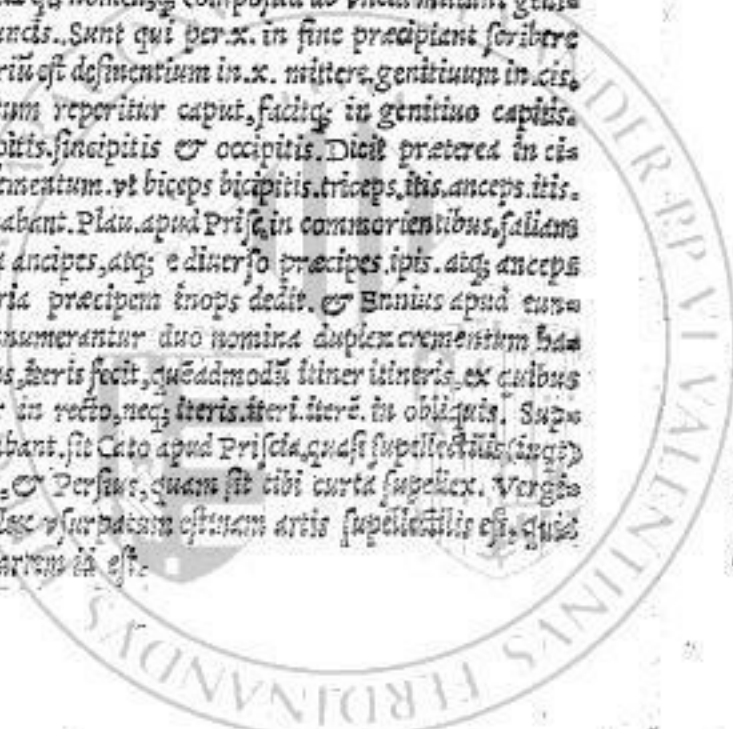 nomenq; composita ab vncia mittunt geni=
uncis. Sunt qui per.x. in fine præcipiant ſcribere
riū eſt deſinentium in.x. mittere genitiuum in.cis.
tum reperitur caput, facitq; in genitiuo capitis.
pitis.ſincipitis & occipitis.Dicit præterea in ci=
ementum.vt biceps bicipitis.triceps,itis.anceps.itis.
abant.Plau.apud Priſc.in commorientibus,ſaliam
ancipes,atq; e diuerſo præcipes.ipis.atq; anceps
ria præcipem inops dedit. & Ennius apud eun=
numerantur duo nomina duplex crementum ha=
us,iteris fecit,quēadmodū itiner itineris,ex quibus
r in recto,neq; iteris.iteri.iterē. in obliquis. Sup=
bant.ſit Cato apud Priſciā,quaſi ſupellectilis(inqt)
,& Perſius,quam ſit tibi curta ſupellex. Vergi=
lex vſurpatum eſt:nam artis ſupellectilis eſt, quia
artem id eſt.
DER PP VI VALENTINVS FERDINANDVS